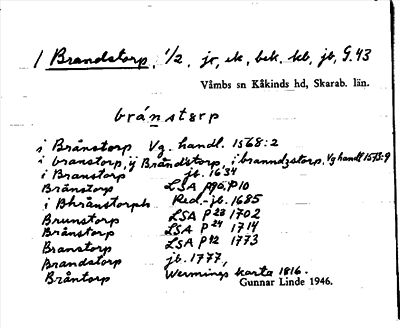 1 Brandstorp, 1/2, jr, ek, bek, kb, jb, G.43
Våmbs sn Kåkinds hd, Skarab. län.
bránstɘrp
i Brånstorp Vg. handl. 1568:2
i branstorp, ij Brandstorp, i branndzstorp, Vg handl 1573:9
i Branstorp jb. 1634
Brånstorp LSA P10
i Bhrånstorph Red.-jb. 1685
Brunstorp LSA P23 1702
Brånstorp LSA P24 1714
Branstorp LSA P12 1773
Brandstorp jb. 1777,
Bråntorp Wermings karta 1816.
Gunnar Linde 1946.